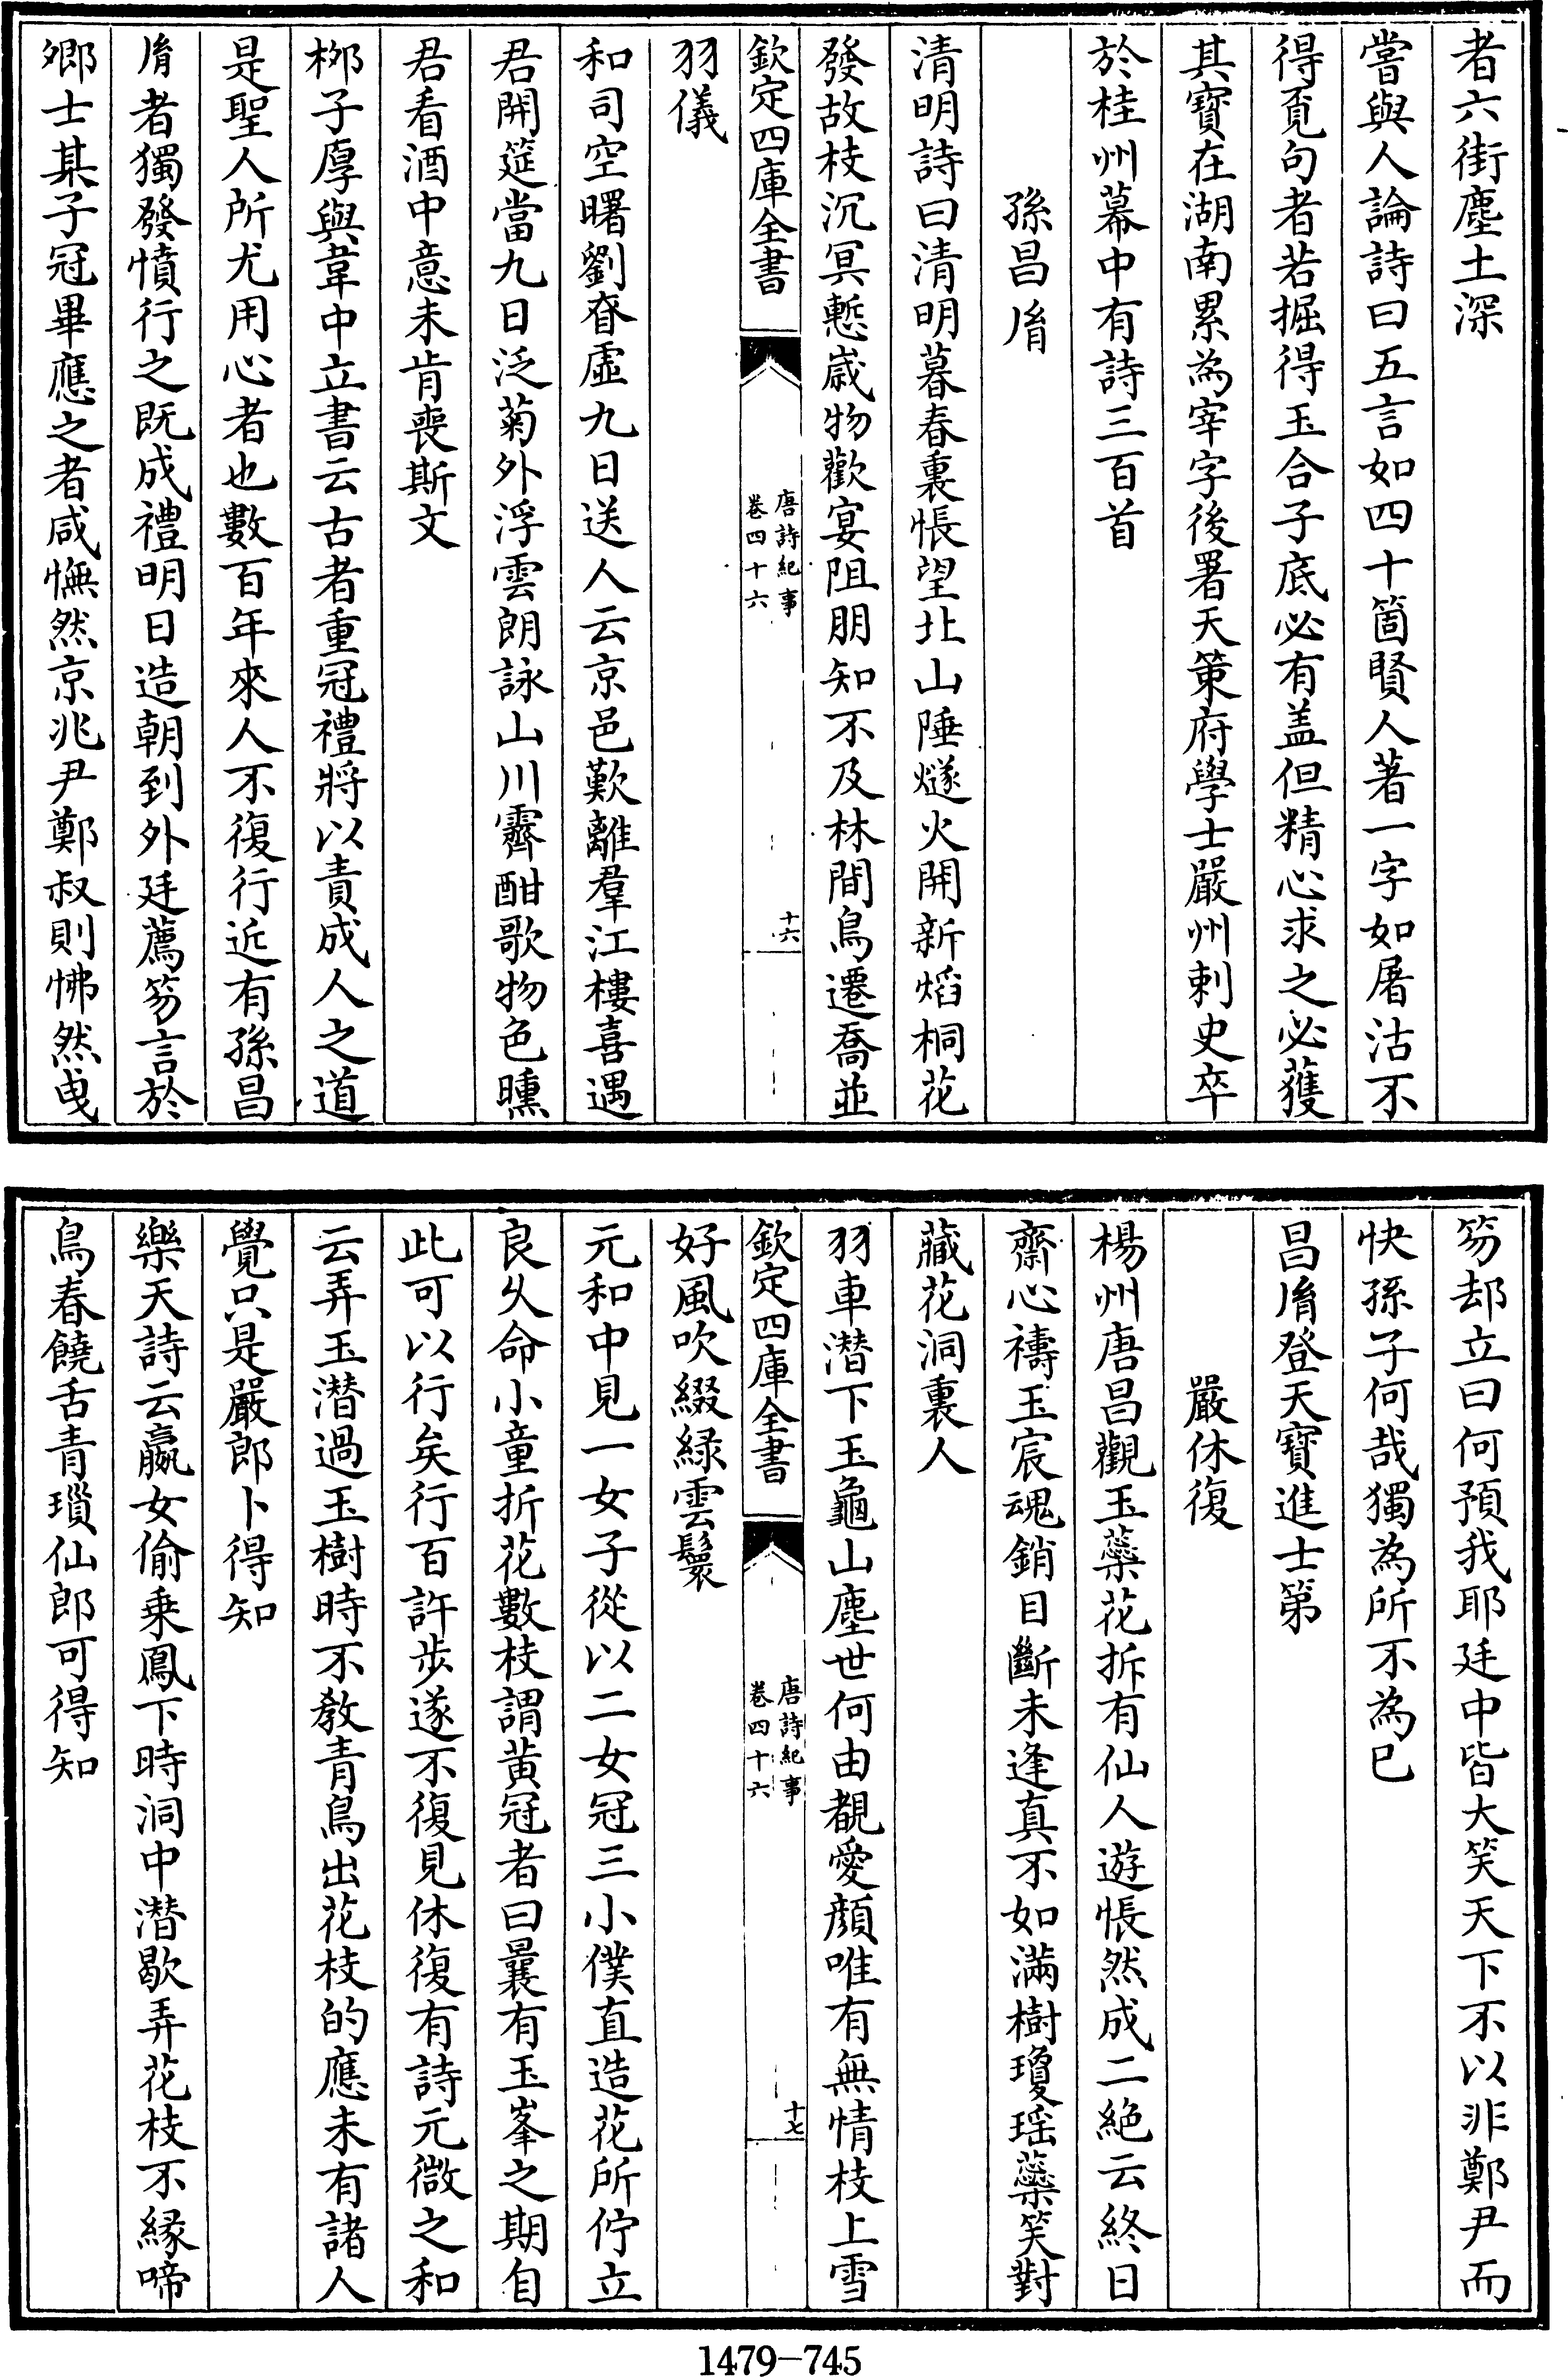 者六街塵土深
嘗與人論詩曰五言如四十箇賢人著一字如屠沽不
得覓句者若掘得玉合子底必有盖但精心求之必獲
其寳在湖南累為宰字後署天策府學士嚴州刺史卒
於桂州幕中有詩三百首
孫昌𦙍
清明詩曰清明暮春裏悵望北山陲燧火開新焰桐花
發故枝沉冥慙歲物歡宴阻朋知不及林間鳥遷喬並
欽定四庫全書
唐詩紀事
卷四十六
十六
羽儀
和司空曙劉眘虛九日送人云京邑歎離羣江樓喜遇
君開筵當九日泛菊外浮雲朗詠山川霽酣歌物色曛
君看酒中意未肯喪斯文
栁子厚與韋中立書云古者重冠禮將以責成人之道
是聖人所尤用心者也數百年來人不復行近有孫昌
𦙍者獨發憤行之既成禮明日造朝到外廷薦笏言於
卿士某子冠畢應之者咸憮然京兆尹鄭叔則怫然曵
笏却立曰何預我耶廷中皆大笑天下不以非鄭尹而
快孫子何哉獨為所不為已
昌𦙍登天寳進士第
嚴休復
楊州唐昌觀玉蘂花拆有仙人遊悵然成二絶云終日
齋心禱玉宸魂銷目斷未逢真不如滿樹瓊瑶蘂笑對
藏花洞裏人
羽車潜下玉龜山塵世何由覩愛顔唯有無情枝上雪
欽定四庫全書
唐詩紀事
卷四十六
十七
好風吹綴緑雲鬟
元和中見一女子從以二女冠三小僕直造花所佇立
良乆命小童折花數枝謂黄冠者曰曩有玉峯之期自
此可以行矣行百許步遂不復見休復有詩元微之和
云弄玉潜過玉樹時不教青鳥出花枝的應未有諸人
覺只是嚴郎卜得知
樂天詩云嬴女偷乗鳳下時洞中潜歇弄花枝不縁啼
鳥春饒舌青瑣仙郎可得知
1479-745